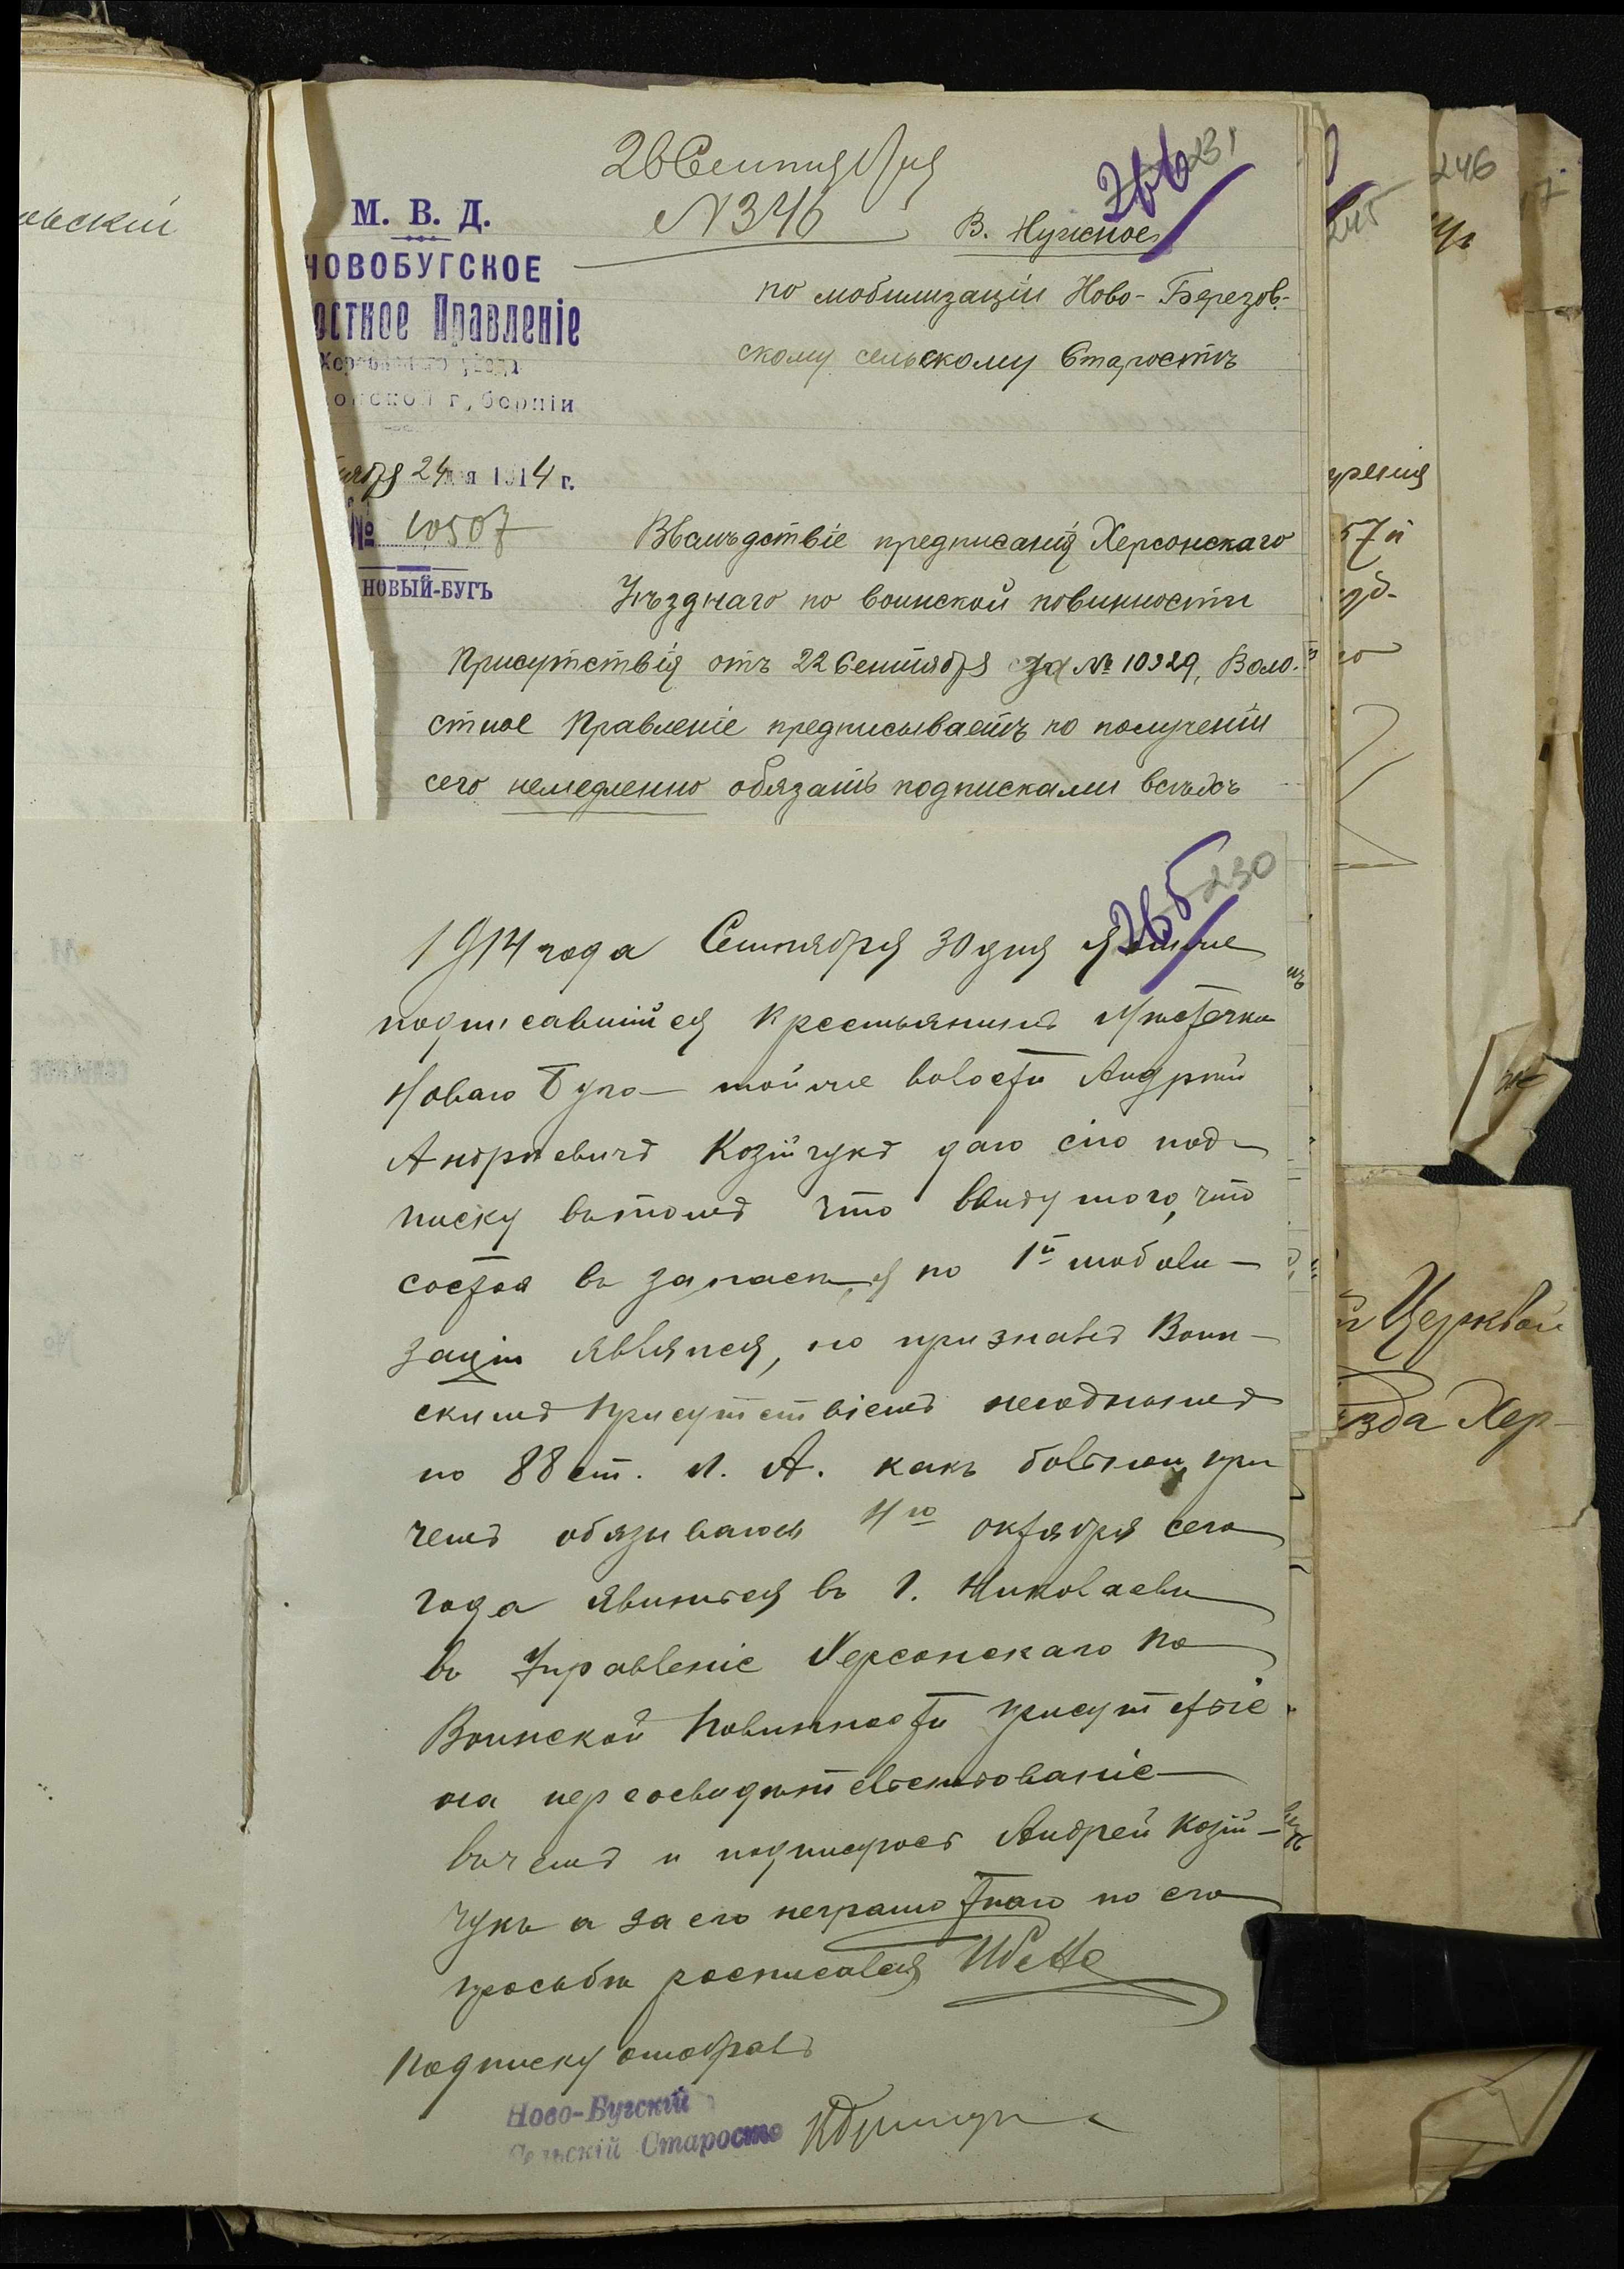 26 Сентября
№ 346
266
231
М. В. Д.
НОВОБУГСКОЕ
остное Правленіе
уѣзда
губерніи
24 дня 1914 г.
№ 10507
НОВЫЙ-БУГЪ
В. Нужное
по мобилизаціи Ново-Березов-
скому сельскому Старостѣ
Вслѣдствіе предписанія Херсонскаго
Уѣзднаго по воинской повинности
Присутствія отъ 22 Сентября за № 10929, Воло-
стное Правленіе предписываетъ по полученіи
сего немедленно обязать подписками всѣхъ
265
230
1914 года Сентября 30 дня я ниже
подписавшійся Крестьянинъ Мѣстечка
Новаго Буга тойже волости Андрей
Андреевичъ Козійчукъ даю сію под-
писку въ томъ что ввиду того, что
состоя въ запасѣ, я по 1й мобили-
заціи являлся, но признавъ Воин-
скимъ Присутствіемъ негоднымъ
по 88 ст. л. А. какъ больной, при
чемъ обязываюсь 4го октября сего
года явиться въ г. Николаевъ
въ Управленіе Херсонскаго по
Воинской Повинности присутствіе
на переосвидѣтельствованіе
въ чемъ и подписуюсь Андрей Козій-
чукъ а за его неграмотнаго по его
просьбѣ росписался
Подписку отобралъ
Ново-Бугскій
Сельскій Староста
овскій
246
245
57й
й Церквой
ѣзда Хер-